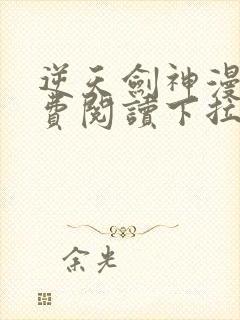 逆天劍神漫
費閱讀下拉
余光